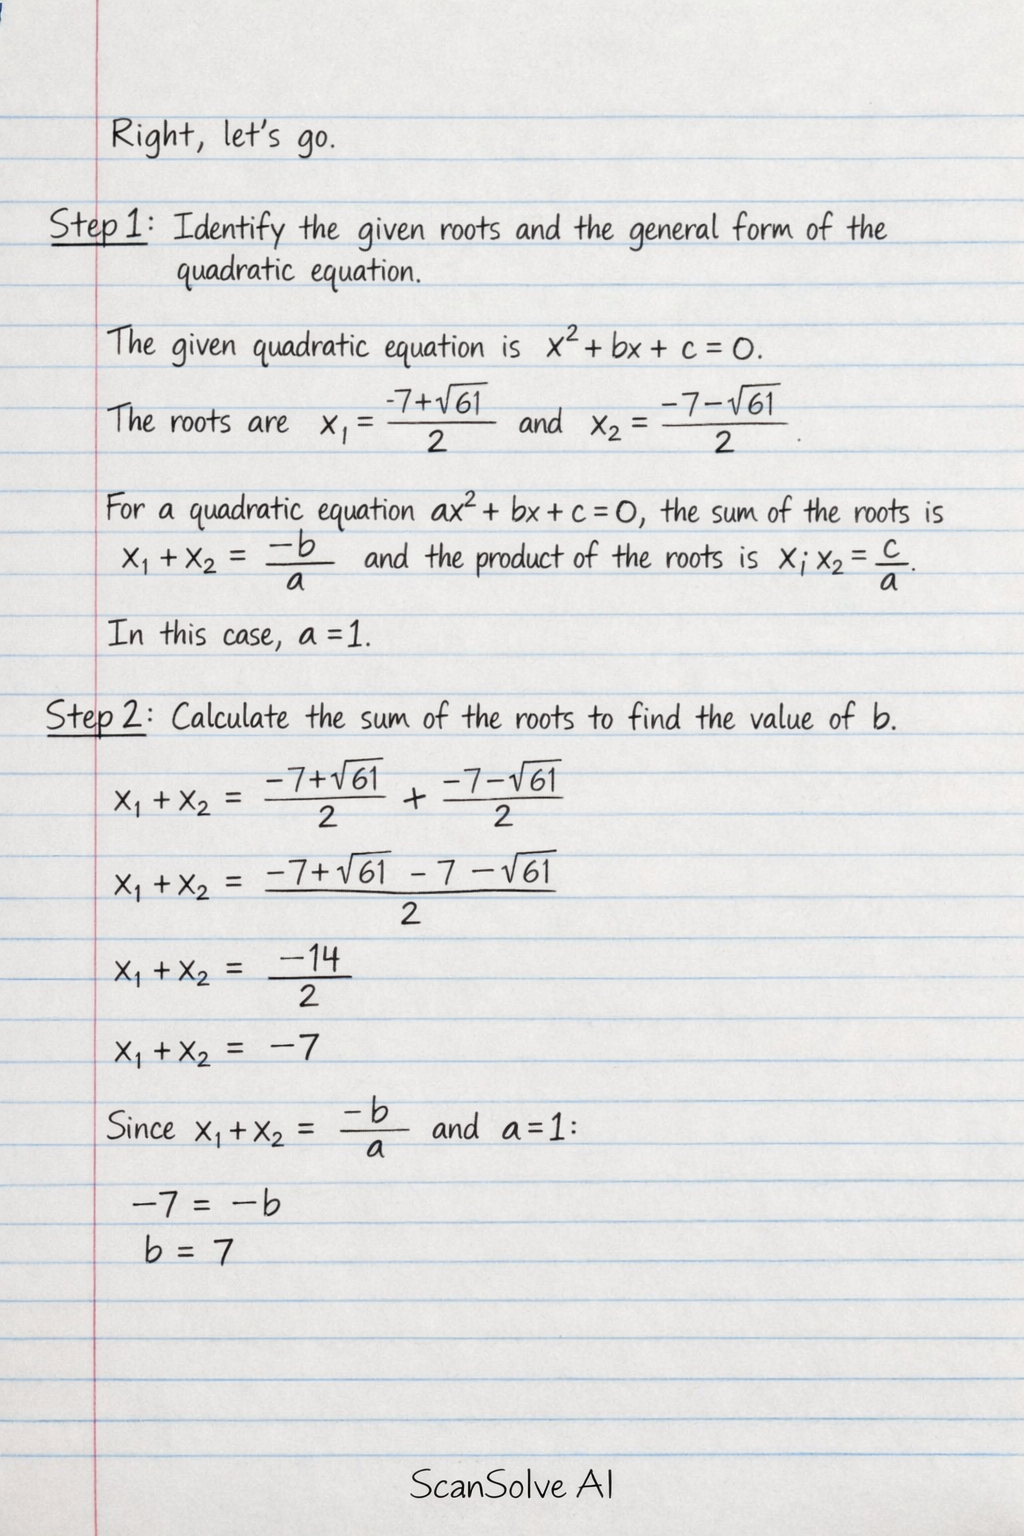 Right, let's go.
Step 1: Identify the given roots and the general form of the
quadratic equation.
The given quadratic equation is x² + bx + c = 0.
The roots are x₁ = (-7+√61)/2 and x₂ = (-7-√61)/2
For a quadratic equation ax² + bx + c = 0, the sum of the roots is
x₁ + x₂ = -b/a and the product of the roots is x; x₂ = c/a.
In this case, a = 1.
Step 2: Calculate the sum of the roots to find the value of b.
x₁ + x₂ = (-7+√61)/2 + (-7-√61)/2
x₁ + x₂ = (-7+√61 - 7 - √61)/2
x₁ + x₂ = -14/2
x₁ + x₂ = -7
Since x₁ + x₂ = -b/a and a = 1:
-7 = -b
b = 7
ScanSolve AI